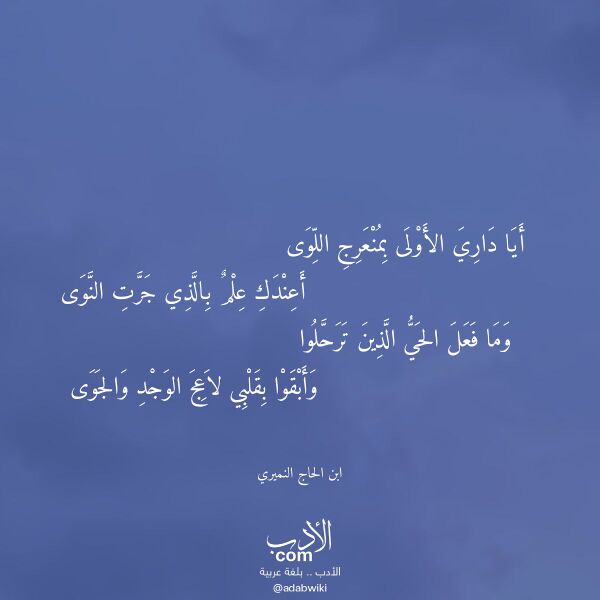 أَيَا دَارِيَ الأَوْلَى بِمُنْعَرِجِ اللِّوَى
أَعِنْدَكِ عِلْمٌ بِالَّذِي جَرَّتِ النَّوَى
وَمَا فَعَلَ الحَيُّ الَّذِينَ تَرَحَّلُوا
وَأَبْقَوْا بِقَلْبِي لاَعِجَ الوَجْدِ وَالجَوَى
ابن الحاج النميري
الأدب
com
الأدب .. بلغة عربية
@adabwiki